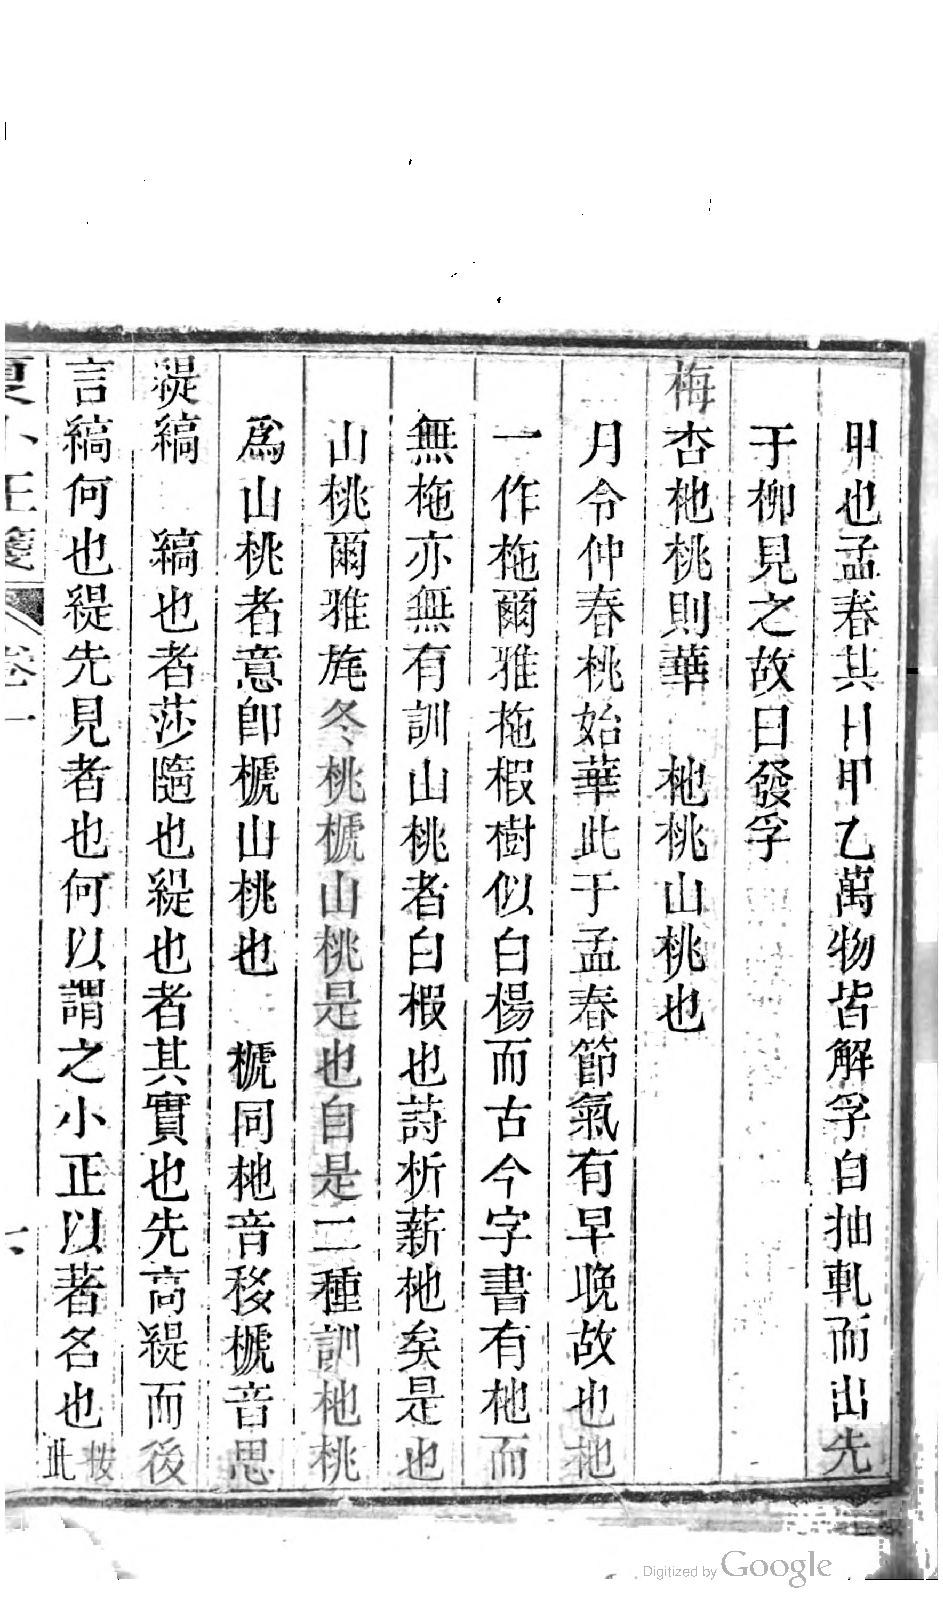 甲也孟春其日甲乙萬物皆解孚自抽軋而出先
于柳見之故曰發孚
梅杏杝桃則華　杝桃山桃也
月令仲春桃始華此于孟春節氣有早晚故也杝
一作柂爾雅柂椵樹似白楊而古今字書有杝而
無柂亦無有訓山桃者白椵也詩析薪杝矣是也
山桃爾雅旄冬桃榹山桃是也自是二種訓杝桃
爲山桃者意卽榹山桃也　榹同杝音移榹音思
緹縞　縞也者莎隨也緹也者其實也先高緹而後
言縞何也緹先見者也何以謂之小正以著名也按此
夏小正箋 卷一 六
Digitized by Google